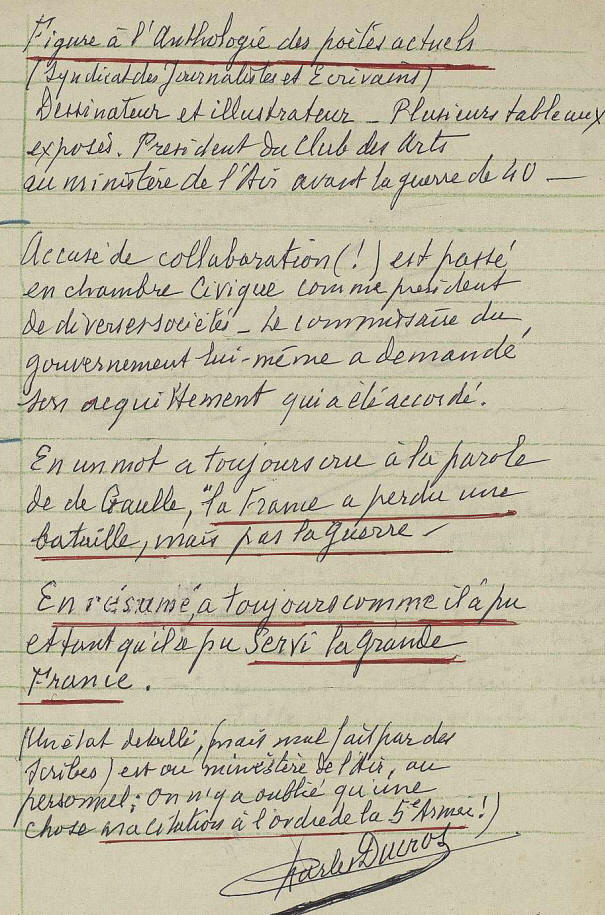 Figure à l'Anthologie des poètes actuels
(Syndicat des Journalistes et Ecrivains)
Dessinateur et illustrateur - Plusieurs tableaux
exposés. President du Club des Arts
au ministère de l'Air avant la guerre de 40 -
Accusé de collaboration (!) est passé
en chambre Civique comme president
de diverses sociétés - Le commissaire du
gouvernement lui-même a demandé
son acquittement qui a été accordé.
En un mot a toujours cru à la parole
de de Gaulle, "la France a perdu une
bataille, mais pas la guerre -
En résumé, a toujours comme il a pu
et tant qu'il a pu servi la grande
France.
(Un état detaillé, (mais mal fait par des
scribes) est au ministère de l'Air, au
personnel; on n'y a oublié qu'une
chose ma citation à l'ordre de la 5e Armée!)
Charles Ducros